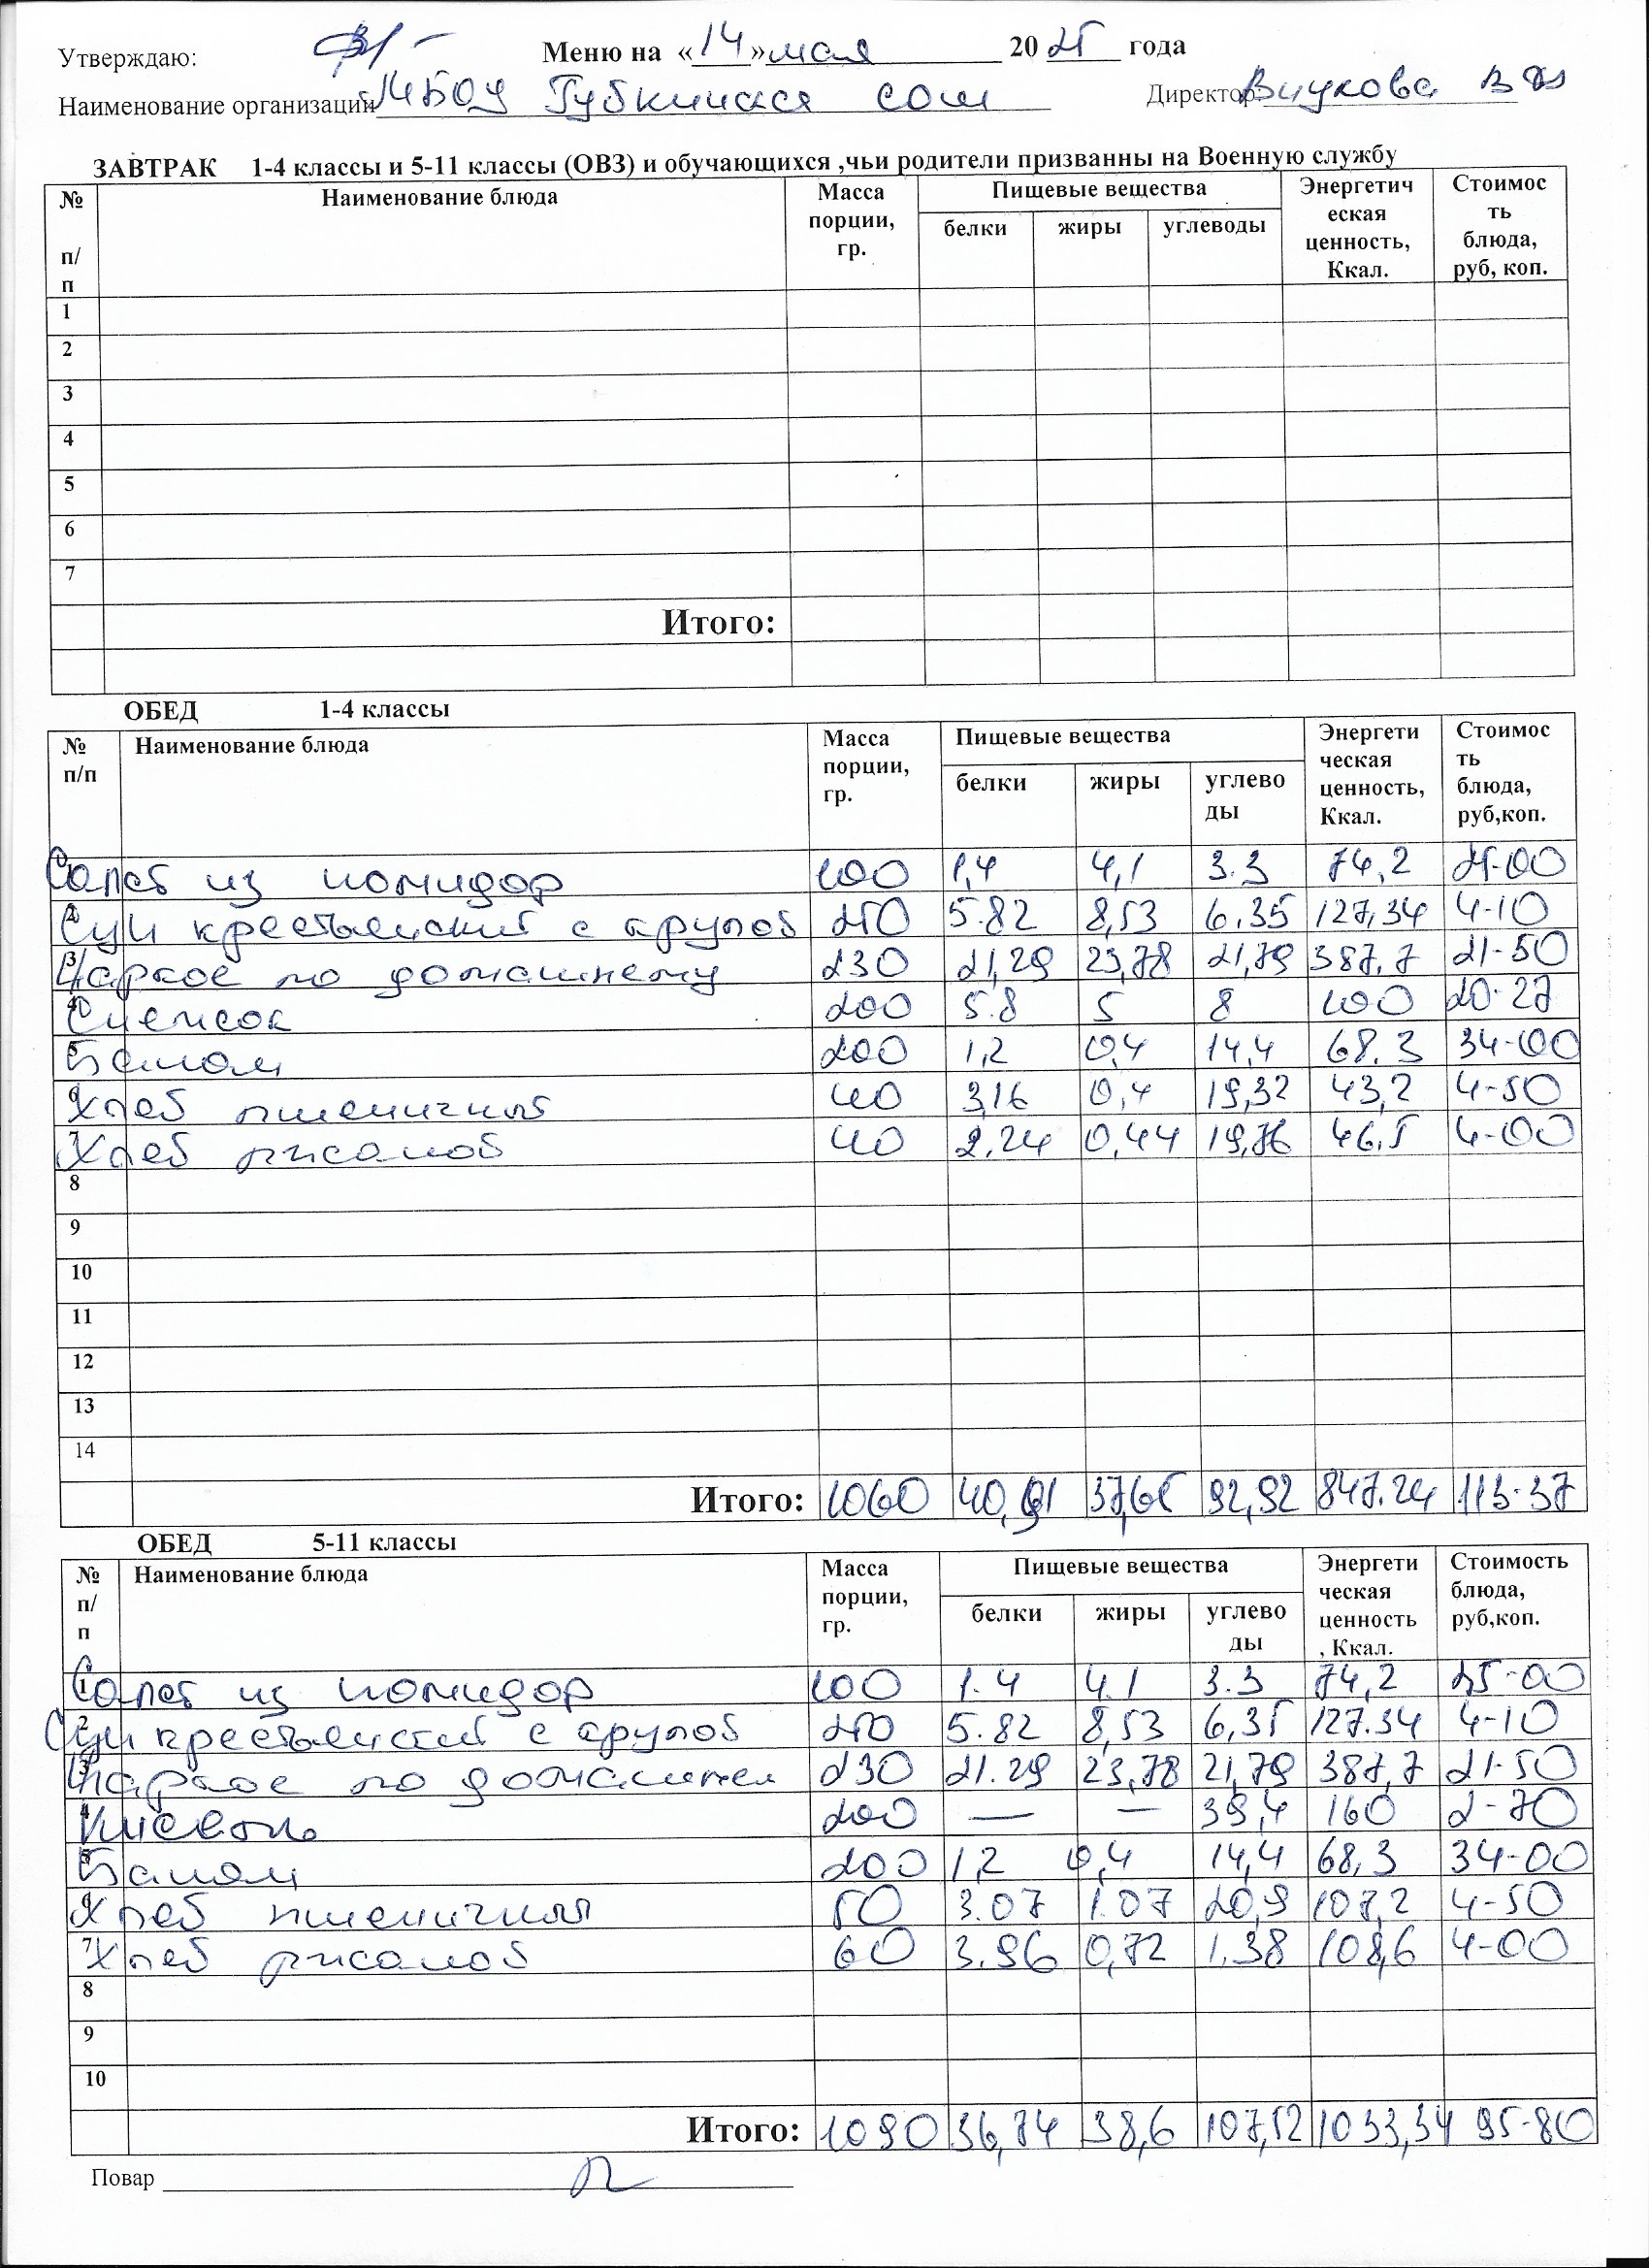 Утверждаю: Меню на «14» мая 2025 года
Наименование организации МБОУ Губкинская сош Директор: Внукова В
ЗАВТРАК 1-4 классы и 5-11 классы (ОВЗ) и обучающихся ,чьи родители призванны на Военную службу
№ п/п Наименование блюда Масса порции, гр. Пищевые вещества Энергетическая ценность, Ккал. Стоимость блюда, руб, коп.
белки жиры углеводы
1
2
3
4
5
6
7
Итого:
ОБЕД 1-4 классы
№ п/п Наименование блюда Масса порции, гр. Пищевые вещества Энергетическая ценность, Ккал. Стоимость блюда, руб,коп.
белки жиры углеводы
1 Салат из помидор 100 1,4 4,1 3.3 74,2 25-00
2 Суп крестьянский с крупой 250 5.82 8,53 6.35 127,34 4-10
3 Жаркое по домашнему 230 21,29 23,78 21,79 387,7 21-50
4 Снежок 200 5.8 5 8 100 20-27
5 Банан 200 1,2 0,4 14,4 68,3 34-00
6 Хлеб пшеничный 40 3,16 0,4 19,32 43,2 4-50
7 Хлеб ржаной 40 2.24 0,44 19,76 46.5 4-00
8
9
10
11
12
13
14
Итого: 1060 40,91 37,65 92,92 847.24 113-37
ОБЕД 5-11 классы
№ п/п Наименование блюда Масса порции, гр. Пищевые вещества Энергетическая ценность, Ккал. Стоимость блюда, руб,коп.
белки жиры углеводы
1 Салат из помидор 100 1.4 4.1 3.3 74,2 25-00
2 Суп крестьянский с крупой 250 5.82 8,53 6,35 127.34 4-10
3 Жаркое по домашнем 230 21.29 23,78 21,79 387,7 21-50
4 Кисель 200 — — 39,4 160 2-70
5 Банан 200 1,2 0,4 14,4 68,3 34-00
6 Хлеб пшеничный 50 3.07 1.07 20,9 107,2 4-50
7 Хлеб ржаной 60 3.96 0,72 1.38 108,6 4-00
8
9
10
Итого: 1090 36,74 38,6 107,52 1033,34 95-80
Повар